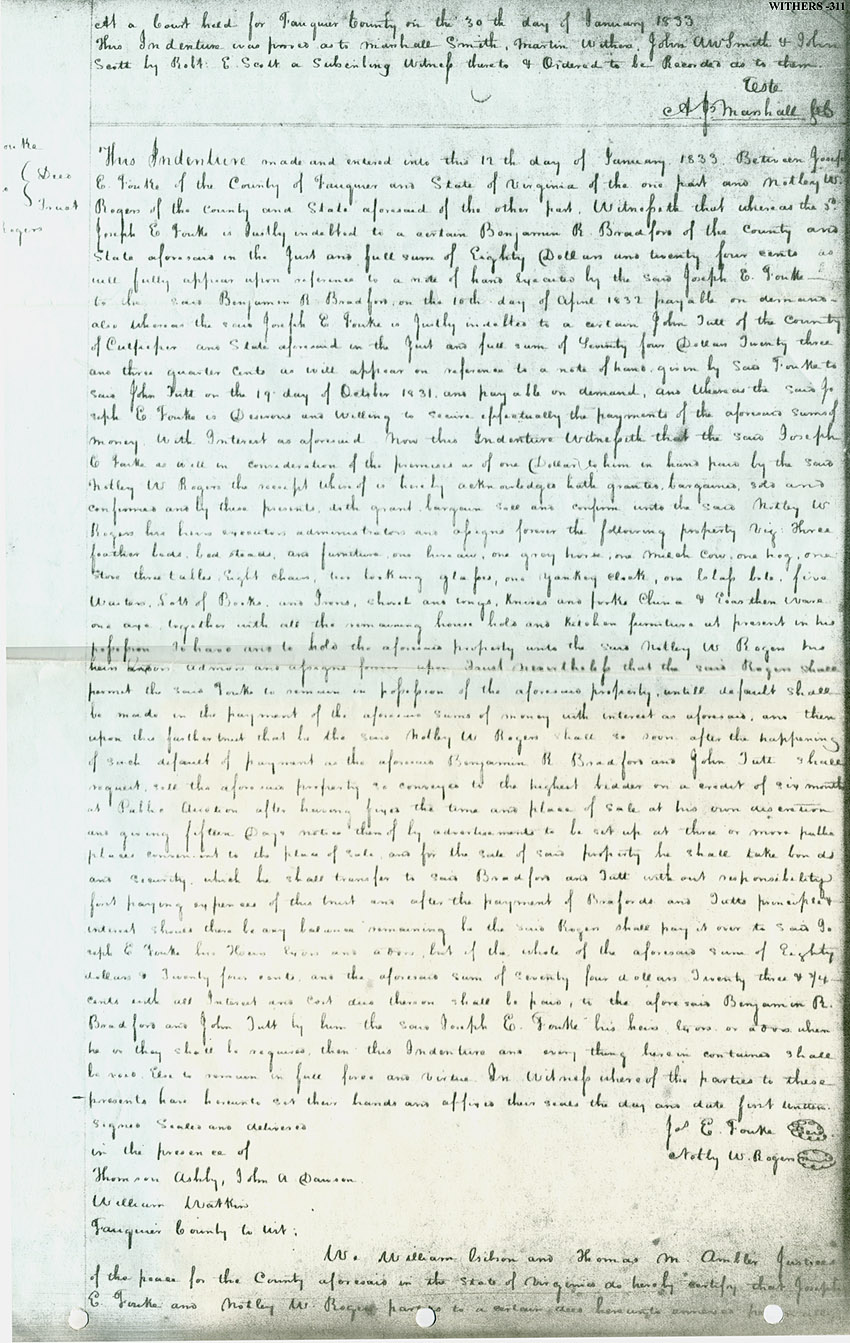 WITHERS -311
At a Court held for Fauquier County on the 30th day of January 1833
This Indenture was proved as to Marshall Smith, Martin Withers, John AW Smith & John
Scott by Robt. E. Scott a Subscribing Witness thereto & Ordered to be Recorded as to them.
Teste
A J Marshall
This Indenture made and entered into this 12th day of January 1833 Between Joseph
Deed
E Fouke of the County of Fauquier and State of Virginia of the one part and Notley W.
Trust
Rogers of the county and State aforesaid of the other part, Witnesseth that whereas the sd.
Rogers
Joseph E Fouke is justly indebted to a certain Benjamin R. Bradford of the County and
State aforesaid in the Just and full sum of Eighty Dollars and twenty four cents as
will fully appear upon reference to a note of hand Executed by the said Joseph E. Fouke
to the said Benjamin R Bradford, on the 10th day of April 1832 payable on demand
also whereas the said Joseph E Fouke is Justly indebted to a certain John Tutt of the County
of Culpeper and State aforesaid in the Just and full sum of Seventy four Dollars Twenty three
and three quarter cents as will appear on reference to a note of hand given by said Fouke to
said John Tutt on the 19 day of October 1831, and payable on demand, and whereas the said Jo
seph E Fouke is Desirous and Willing to secure effectually the payments of the aforesaid sums of
money With Interest as aforesaid. Now this Indenture Witnesseth that the said Joseph
E Fouke as well in consideration of the premises as of one Dollar to him in hand paid by the said
Notley W Rogers the receipt whereof is hereby acknowledged hath granted, bargained, sold and
confirmed and by these presents, doth grant, bargain sell and confirm unto the said Notley W
Rogers his heirs executors administrators and assigns forever the following property Viz: Three
feather beds, bed steads, and furniture, one bureau, one gray horse, one milch cow, one hog, one
stove three tables, Eight chairs, two looking glasses, one Yankey clock, one, five
Waiters, Lott of Books, and Irons, shovel and tongs, Knives and forks China & Earthen ware
one axe, together with all the remaining house hold and Kitchen furniture at present in his
possession To have and to hold the aforesaid property unto the said Notley W Rogers his
heirs Exors admors and assigns forever upon Trust nevertheless that the said Rogers shall
permit the said Fouke to remain in possession of the aforesaid property, untill default shall
be made in the payment of the aforesaid sums of money with interest as aforesaid, and then
upon this further trust that he the said Notley W Rogers shall so soon after the happening
of such default of payment as the aforesaid Benjamin R Bradford and John Tutt shall
request, sell the aforesaid property so conveyed to the highest bidder on a credit of six months
at Public Auction after having fixed the time and place of sale at his own discretion
and giving fifteen Days notice thereof by advertisements to be set up at three or more public
places convenient to the place of sale, and for the sale of said property he shall take bonds
and security, which he shall transfer to said Bradford and Tutt without responsibility
first paying expences of this trust and after the payment of Brafords and Tutts principle &
interest should there be any balance remaining he the said Rogers shall pay it over to said Jo
seph E Fouke his Heirs Exors and adors, but if the whole of the aforesaid sum of Eighty
dollars & Twenty four cents, and the aforesaid sum of Seventy four dollars Twenty three & 3/4
cents with all Interest and cost due thereon shall be paid, to the aforesaid Benjamin R.
Bradford and John Tutt by him the said Joseph E. Fouke his heirs Exors. or adors. when
he or they shall be required, then this Indenture and every thing herein contained shall
be void. Else to remain in full force and virtue. In Witness whereof the parties to these
presents have hereunto set their hands and affixed their seals the day and date first written.
Signed Sealed and delivered
Jos E. Fouke Seal
in the presence of
Notley W. Rogers
Thomson Ashby, John A Dawson
William Watkins
Fauquier County to wit:
We William Gibson and Thomas M Ambler Justices
of the peace for the County aforesaid in the State of Virginia do hereby certify that Joseph
E. Fouke and Notley W. Rogers parties to a certain deed hereunto annexed